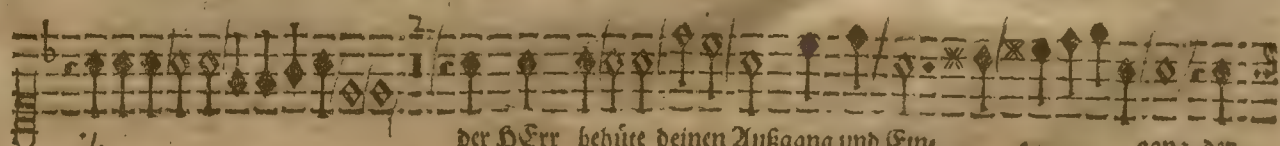 der HErr behüte deinen Außgang und Ein-
gang der